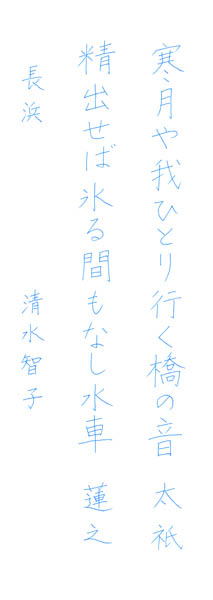 寒月や我ひとり行く橋の音 太祇
精出せば氷る間もなし水車 蓮之
長浜 清水智子